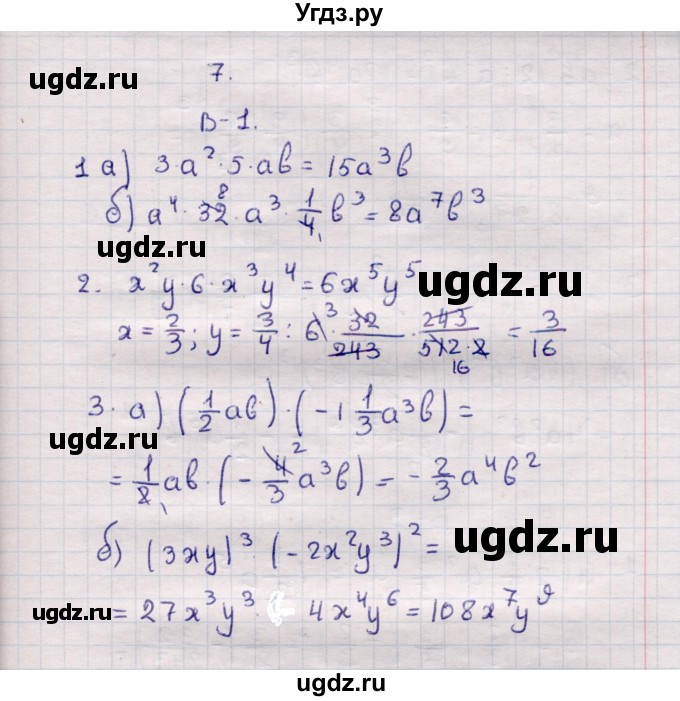 Угдз.ру
ugdz.ru
7.
В-1.
1 а) 3·a²·5·ab = 15a³b
б) a⁴·32·a³·1/4 b³ = 8a⁷b³
8
1
ugdz.ru
2. x²y·6·x³y⁴ = 6x⁵y⁵
ugdz.ru
x = 2/3; y = 3/4 : 6·32/243·243/(512·2) = 3/16
3
16
3. а) (1/2 ab)·(-1 1/3 a³b) =
ugdz.ru
= 1/2 ab·(-4/3 a³b) = -2/3 a⁴b²
2
1
б) (3xy)³·(-2x²y³)² =
ugdz.ru
ugdz.ru
= 27x³y³· 4x⁴y⁶ = 108x⁷y⁹
ugdz.ru
ugdz.ru